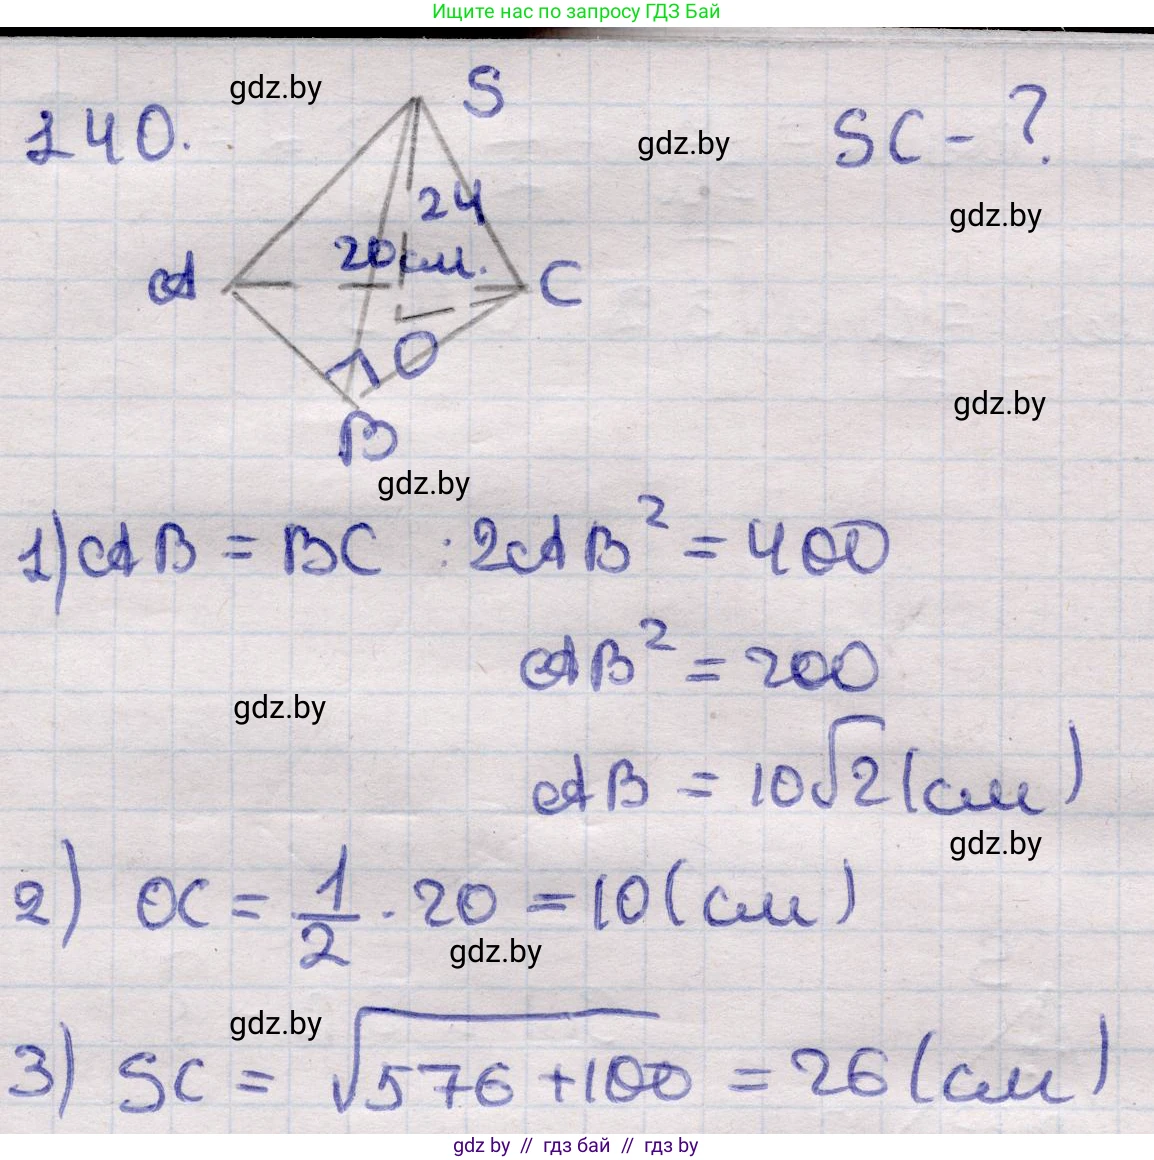 Ищите нас по запросу ГДЗ Бай
gdz.by
S
240.
gdz.by
SC - ?
gdz.by
24
20 см.
A
C
O
B
gdz.by
gdz.by
1) AB = BC : 2AB² = 400
AB² = 200
gdz.by
AB = 10√2 (см)
gdz.by
2) OC = 1/2 · 20 = 10 (см)
gdz.by
gdz.by
3) SC = √576 + 100 = 26 (см)
gdz by // гдз бай // гдз by